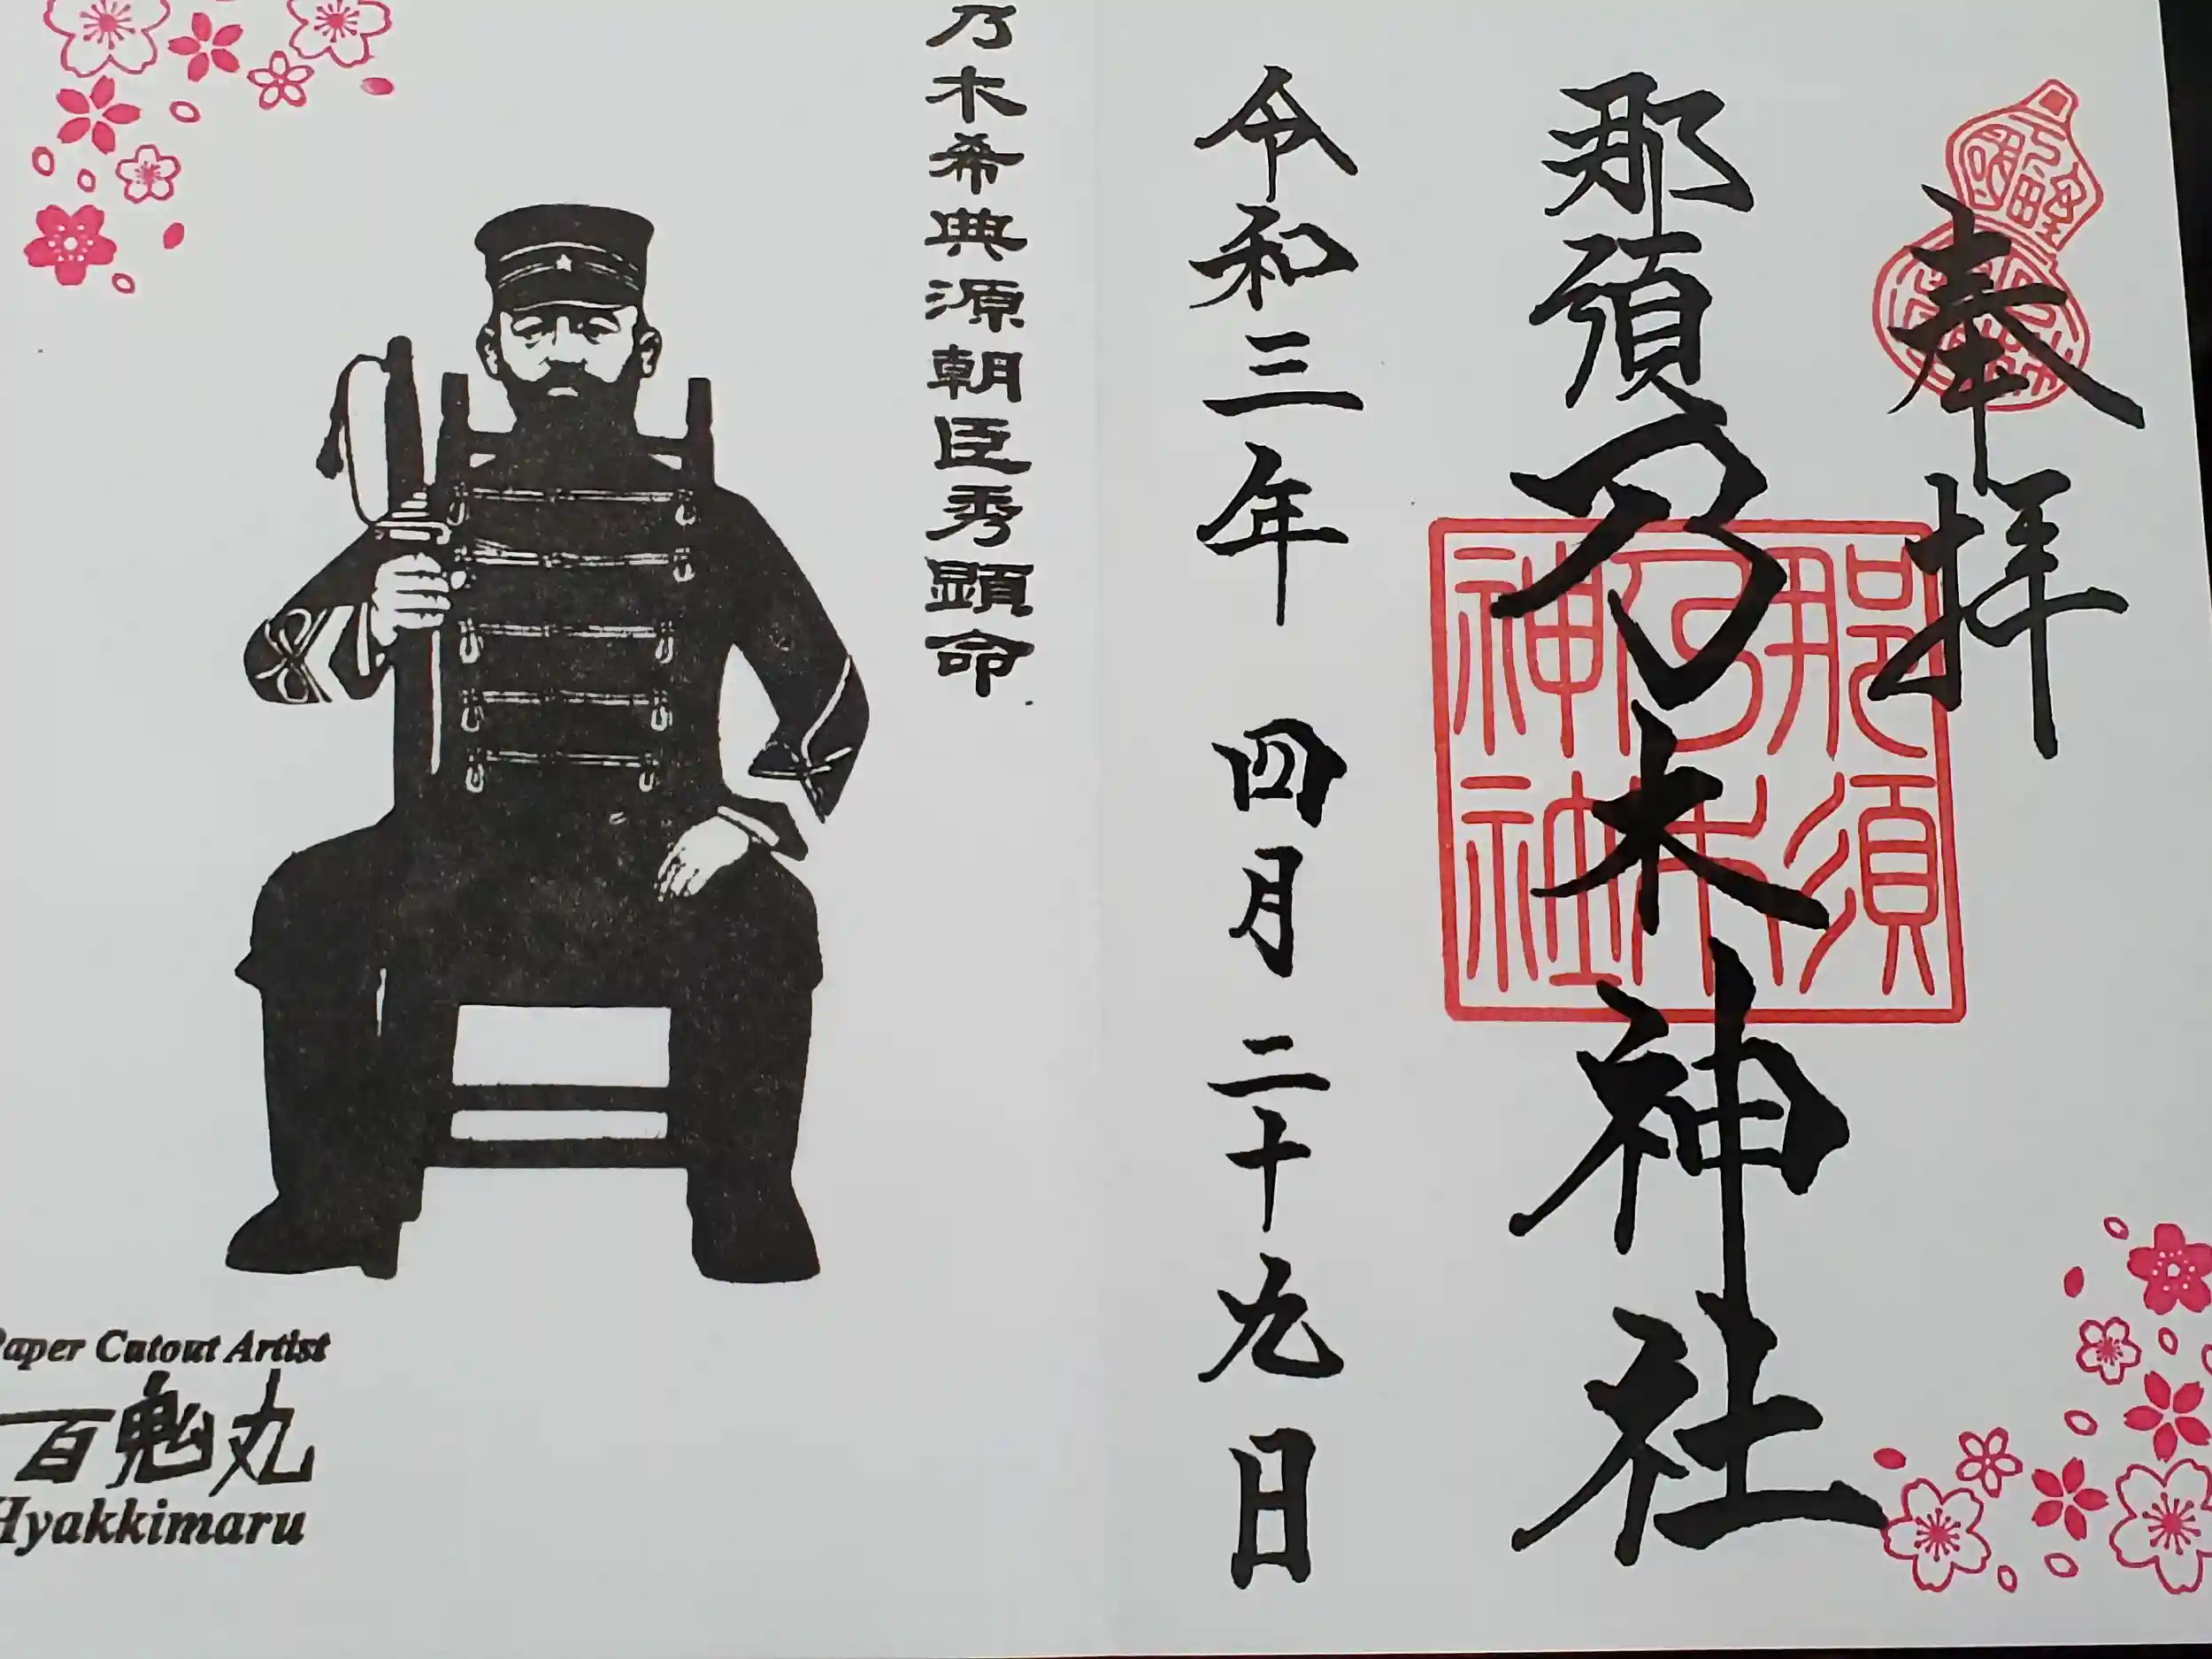 奉拝
那須乃木神社
那須乃木神社
令和三年 四月 二十九日
乃木希典源朝臣秀顕命
Paper Cutout Artist
百鬼丸
Hyakkimaru